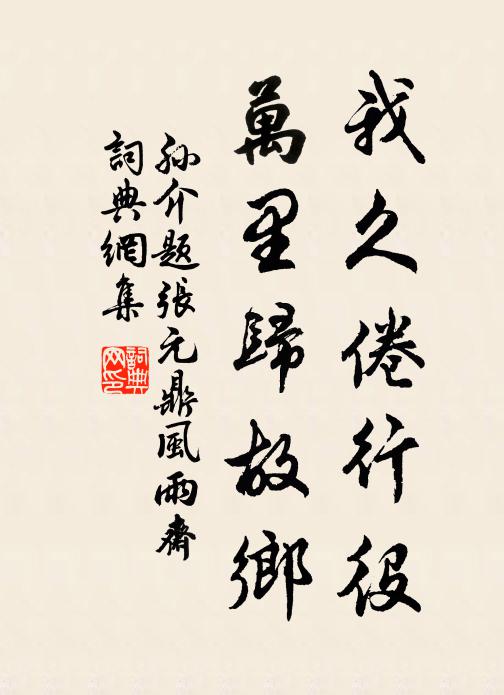 我久倦行役
萬里歸故鄉
孫介題張元鼎風雨齋
詞典網集
詞典網印